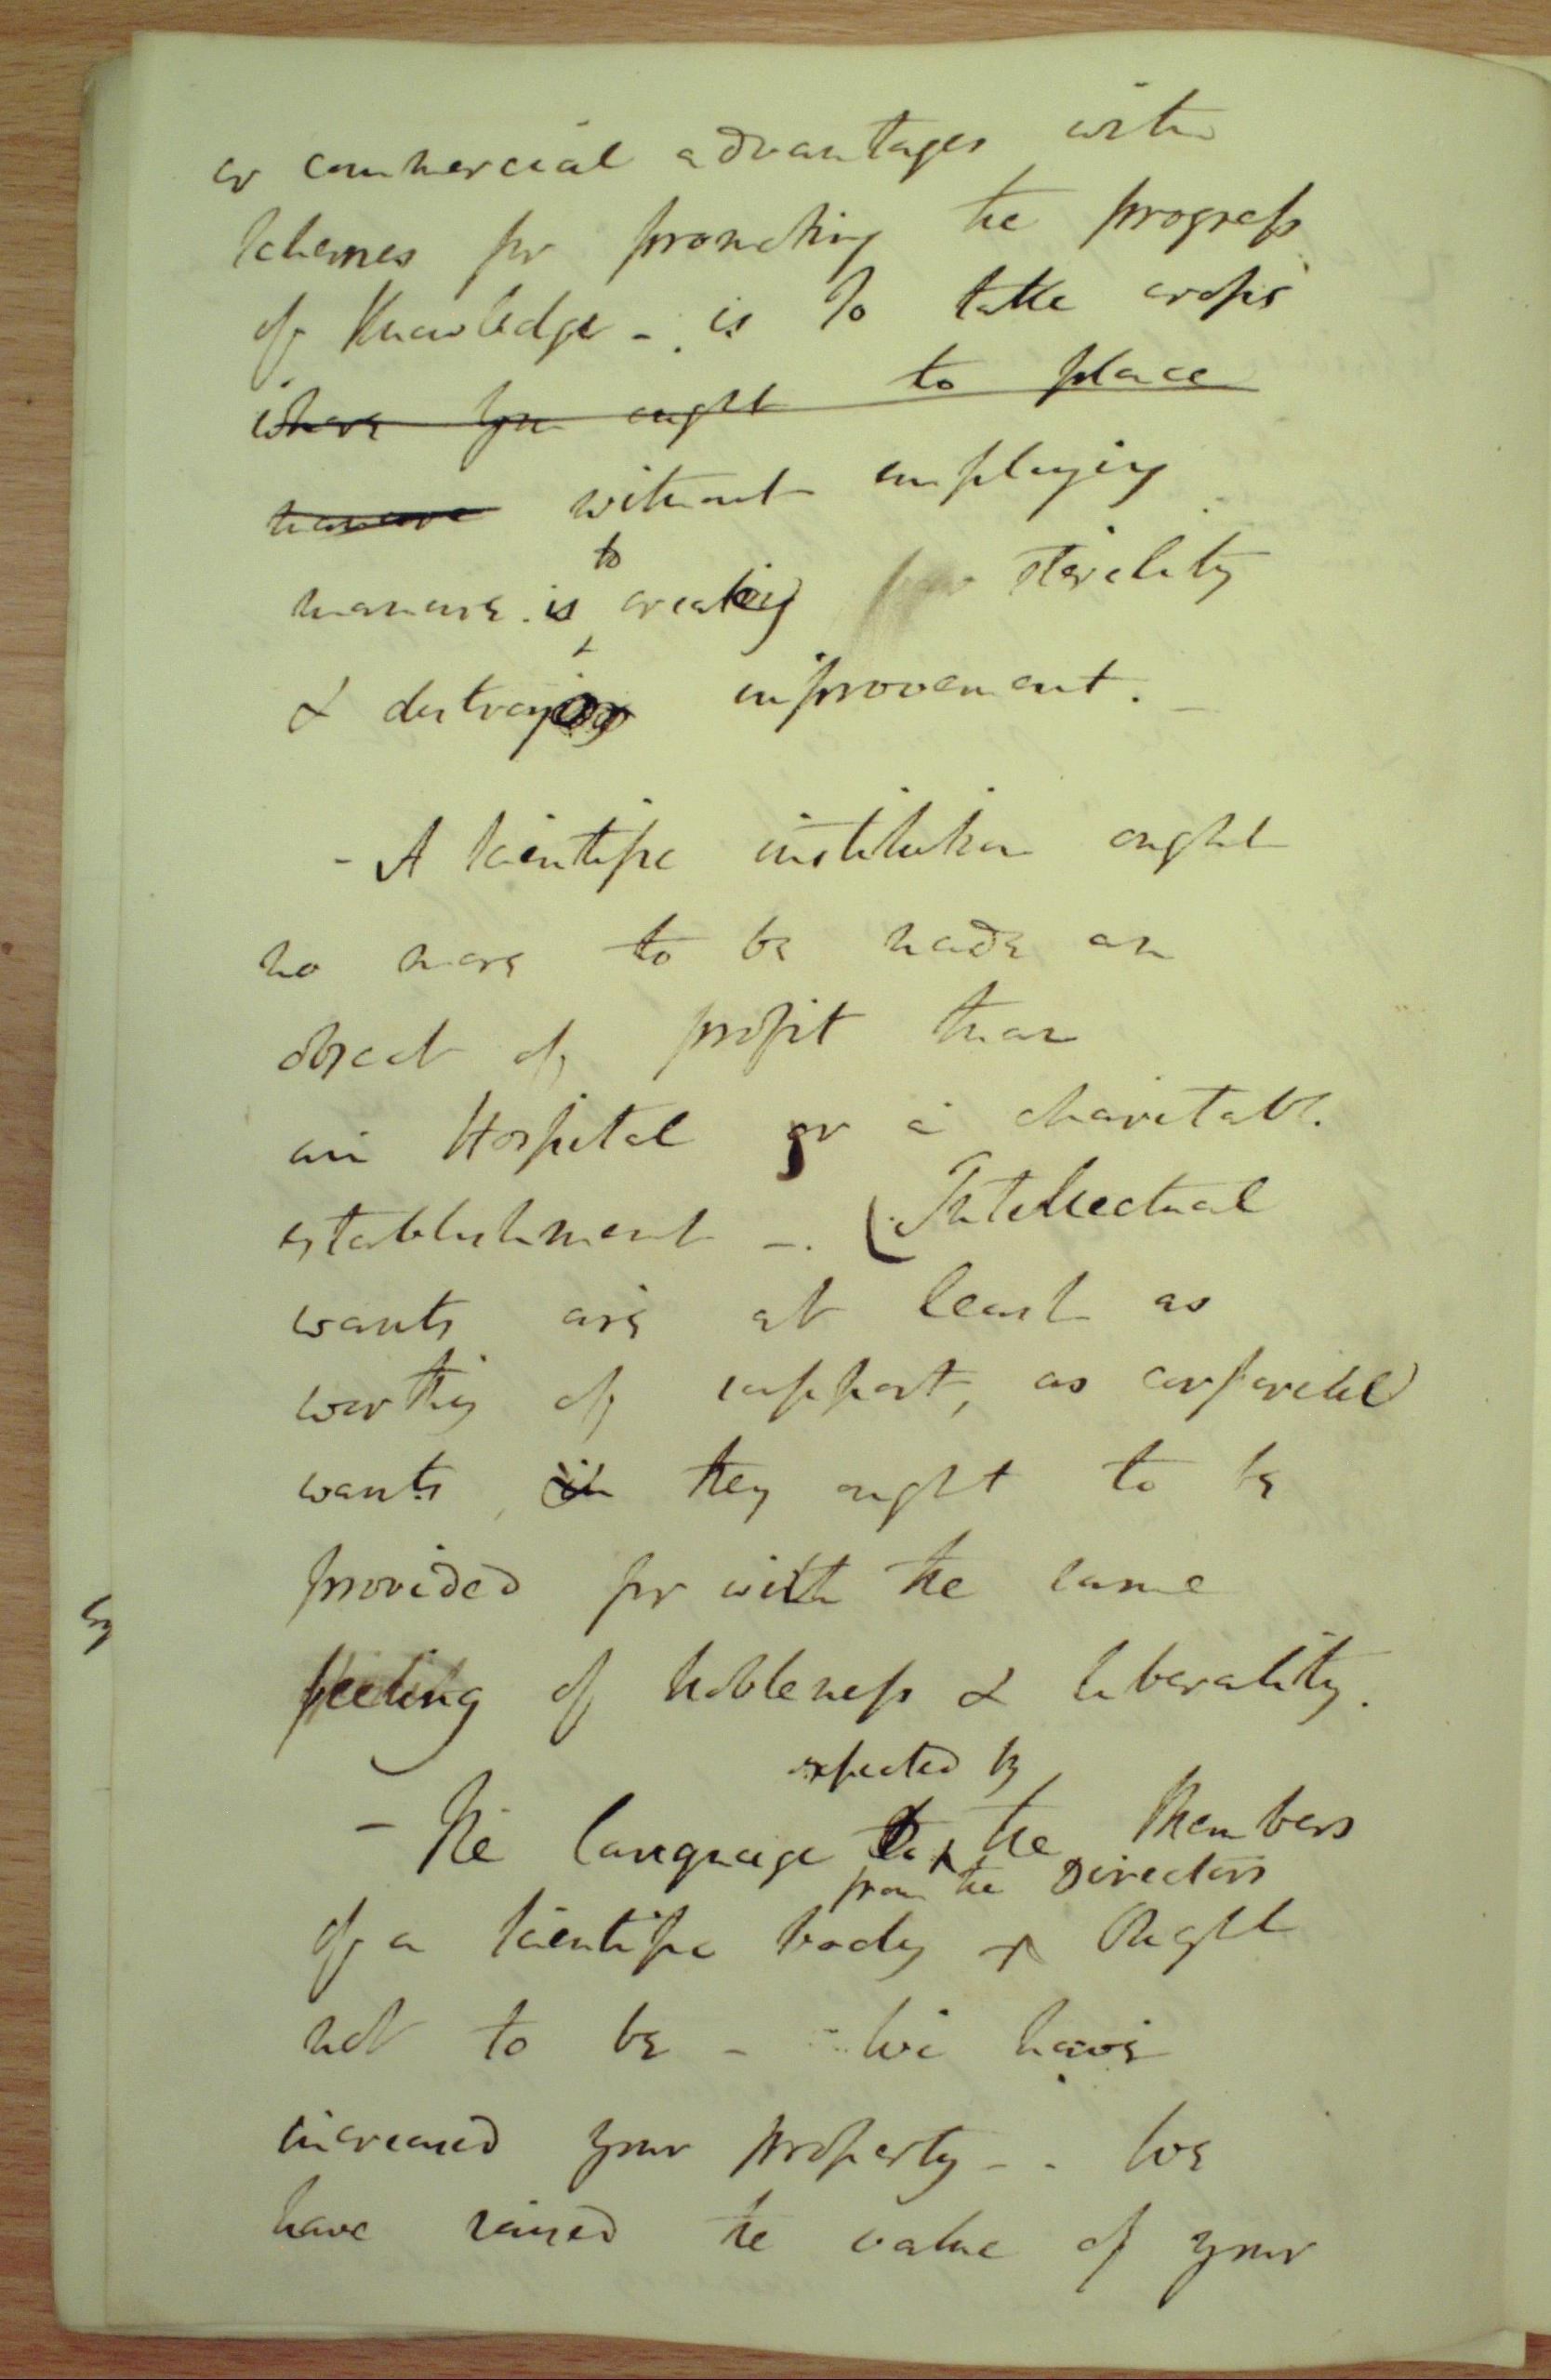 or commercial advantages with
schemes for promoting the progress
of Knowledge - is to take crops
where you ought to place
manure without employing
to
manure. is creating sterility
& destroying improvement. -
- A scientific institution ought
no more to be made an
object of profit than
an Hospital or a charitable
establishment -. (Intellectual
wants are at least as
worthy of support, as corporeal
wants, they ought to be
provided for with the same
feeling of nobleness & liberality.
expected by
- The language to the Members
from the Directors
of a scientific body ought
not to be - We have
increased your property - - We
have raised the value of your